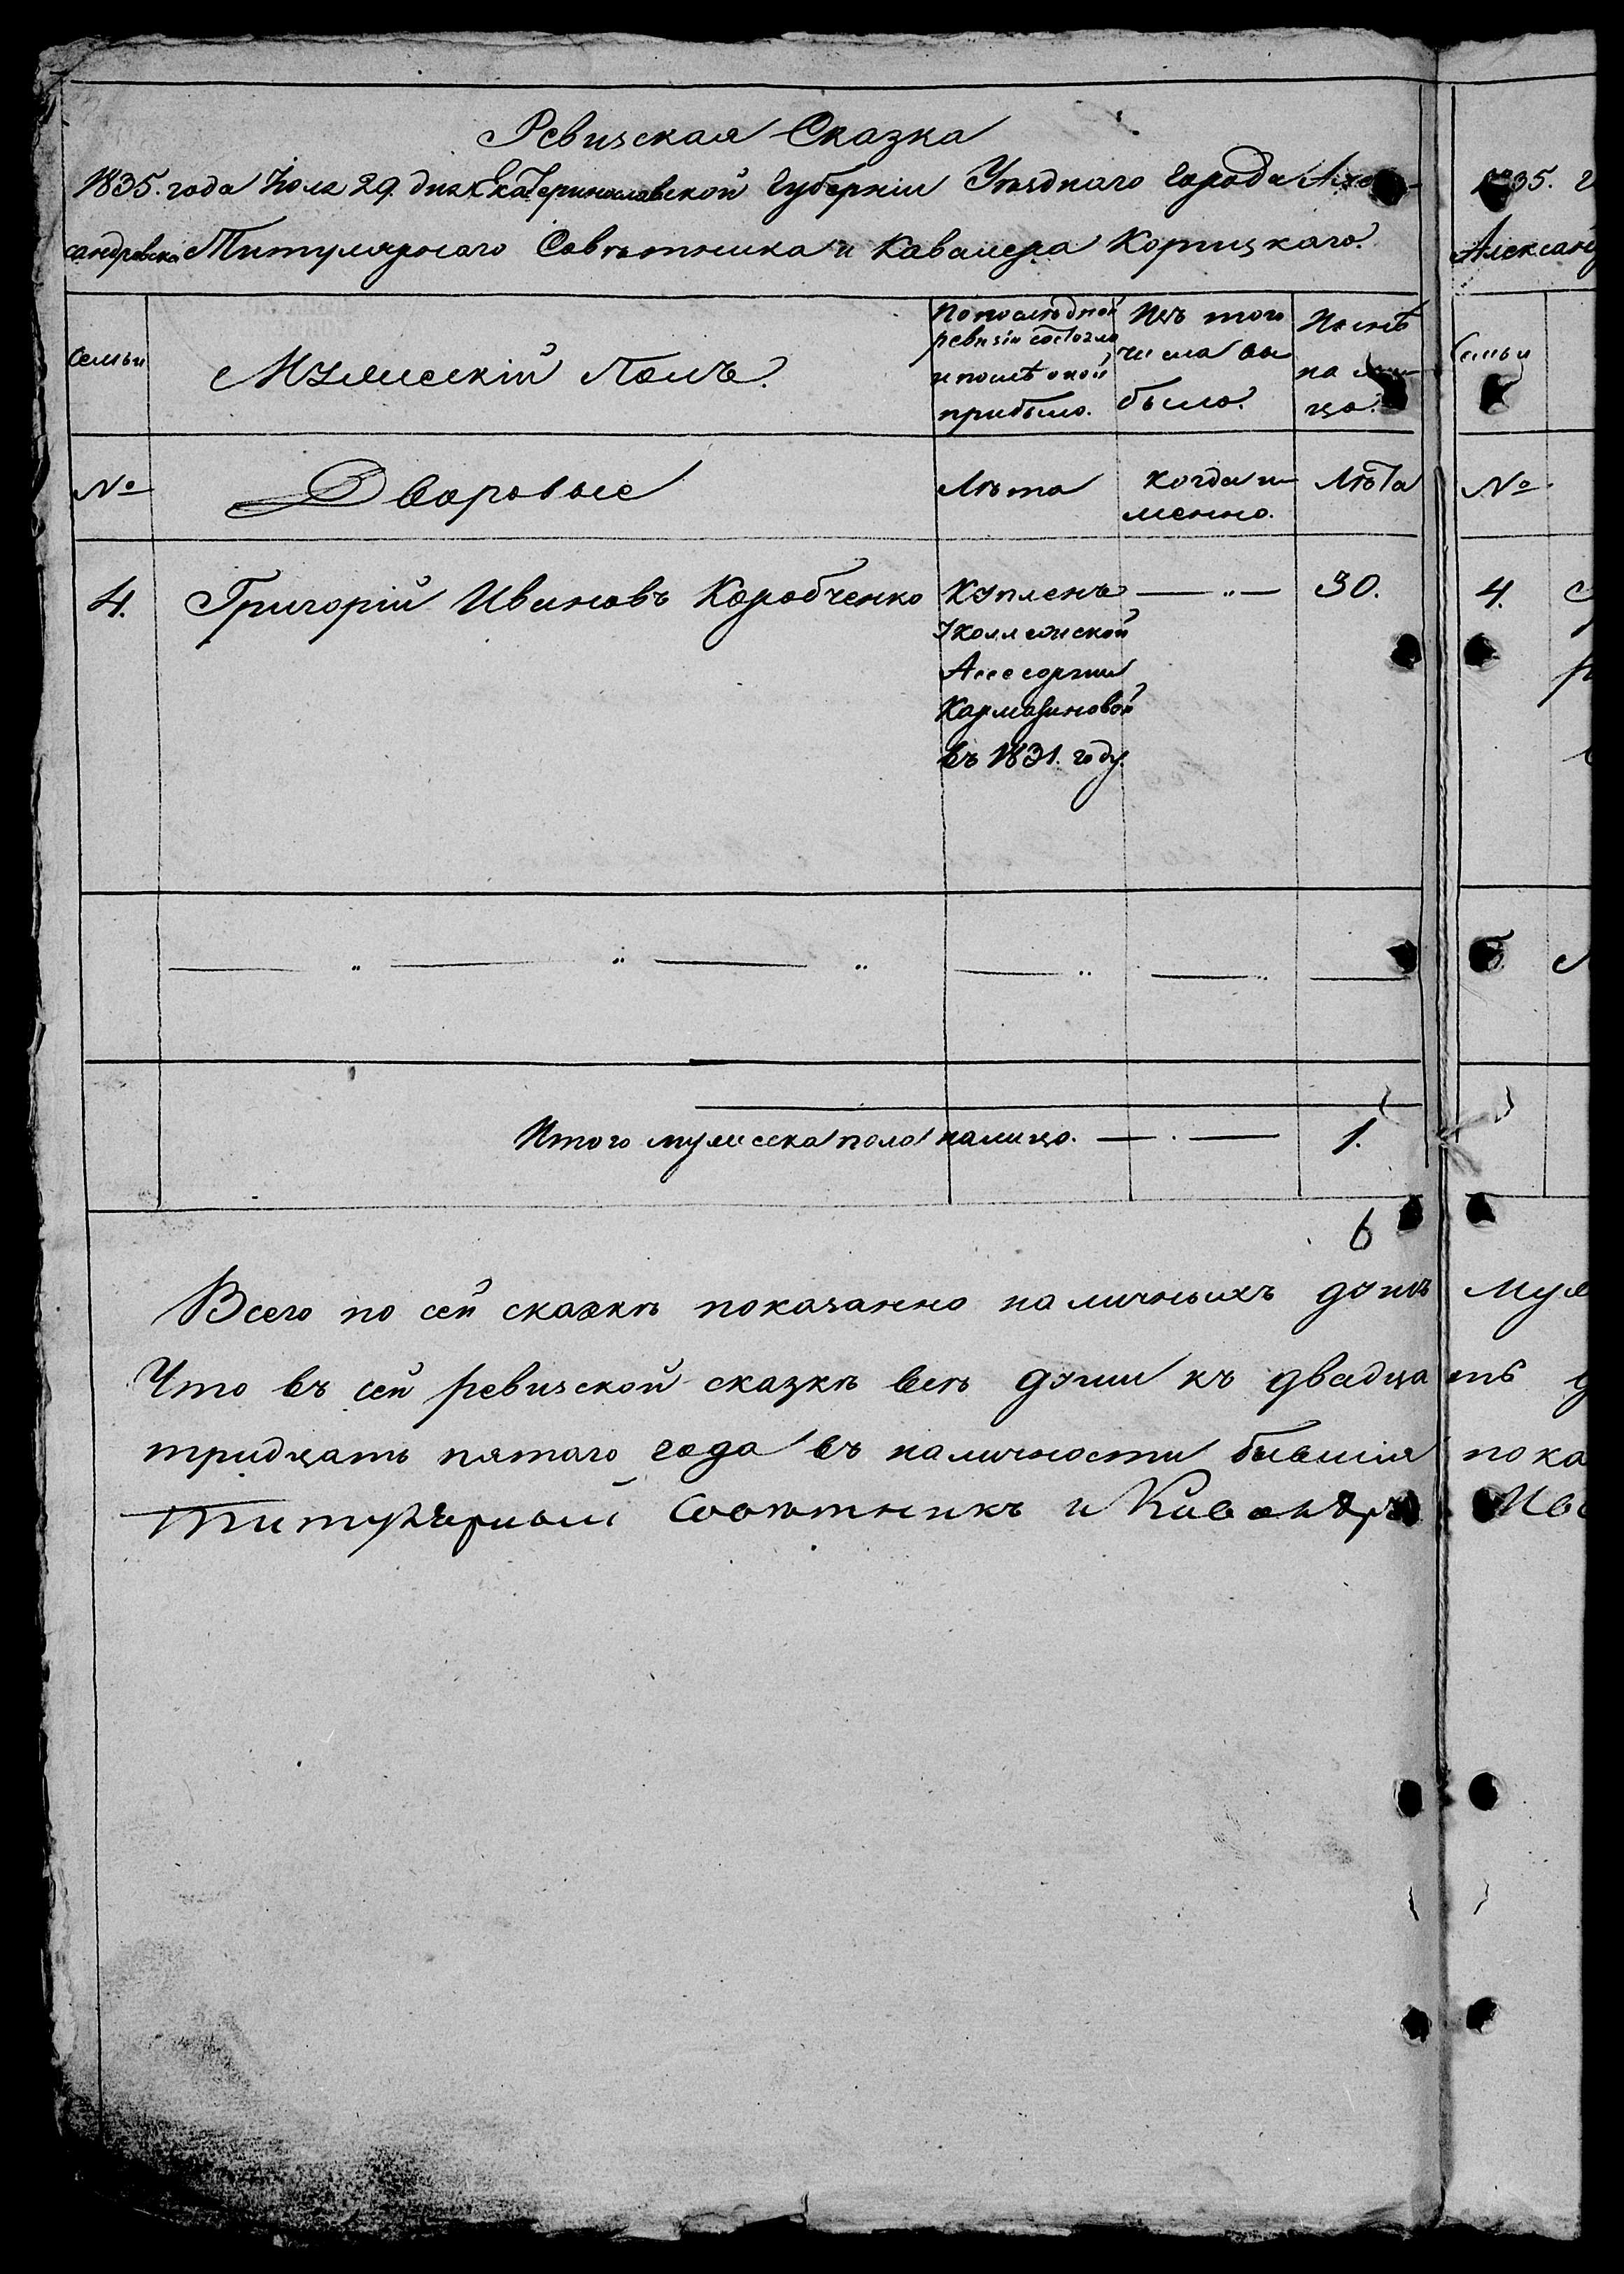 Ревизская Сказка
1835. года Июля 29. дня Екатеринославской Губернии Уѣзднаго Города Алек-
сандровска Титулярнаго Совѣтника и Кавалера Корицкаго.
1835. г
Александ
Семьи
Мужескій Полъ.
По последней ревизіи состояло и послѣ оной прибыло.
Изъ того числа вы было.
Нынѣ на ли цо.
Семьи
№
Дворовые
Лѣта
Когда и менно.
Лѣта
№
4.
Григорій Ивановъ Коробченко
Купленъ
30.
4.
У коллежской
Асессорши
Кармазиновой
въ 1831. году.
5
Итого мужеска пола налицо.
1.
6
Всего по сей сказкѣ показанно наличныхъ душъ муж
Что въ сей ревизской сказкѣ всѣ души къ двадцать д
тридцать пятаго года въ наличности бывшія пока
Титулярный Совѣтникъ и Кавалеръ Ива